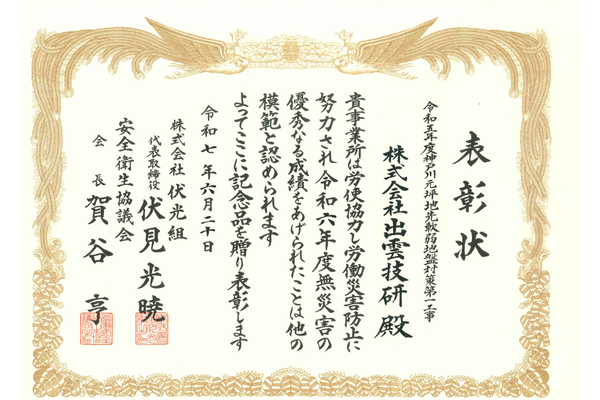 表彰状
令和五年度神戸川元坪地先軟弱地盤対策第一工事
株式会社出雲技研殿
貴事業所は労使協力し労働災害防止に
努力され令和六年度無災害の
優秀なる成績をあげられたことは他の
模範と認められます
よってここに記念品を贈り表彰します
令和七年六月二十日
株式会社伏光組
代表取締役 伏見光暁
安全衛生協議会
会長 賀谷亨